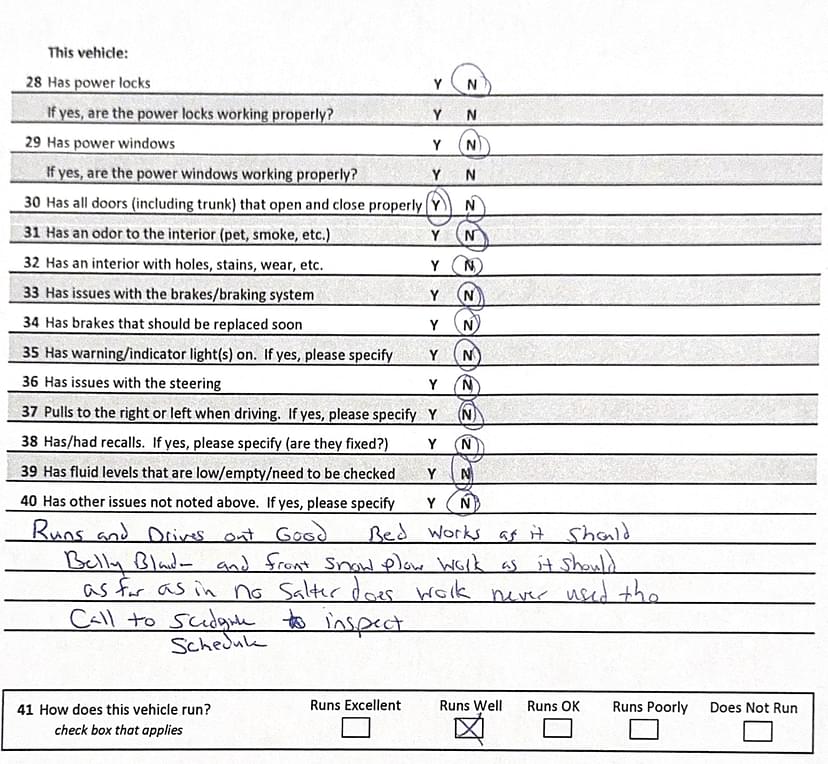 This vehicle:
28 Has power locks Y N
If yes, are the power locks working properly? Y N
29 Has power windows Y N
If yes, are the power windows working properly? Y N
30 Has all doors (including trunk) that open and close properly Y N
31 Has an odor to the interior (pet, smoke, etc.) Y N
32 Has an interior with holes, stains, wear, etc. Y N
33 Has issues with the brakes/braking system Y N
34 Has brakes that should be replaced soon Y N
35 Has warning/indicator light(s) on. If yes, please specify Y N
36 Has issues with the steering Y N
37 Pulls to the right or left when driving. If yes, please specify Y N
38 Has/had recalls. If yes, please specify (are they fixed?) Y N
39 Has fluid levels that are low/empty/need to be checked Y N
40 Has other issues not noted above. If yes, please specify Y N
Runs and Drives out Good Bed works as it should
Belly Blade and front snow plow work as it should
as far as in no Salter does work never used tho
Call to to inspect
Schedule
41 How does this vehicle run? Runs Excellent Runs Well Runs OK Runs Poorly Does Not Run
check box that applies